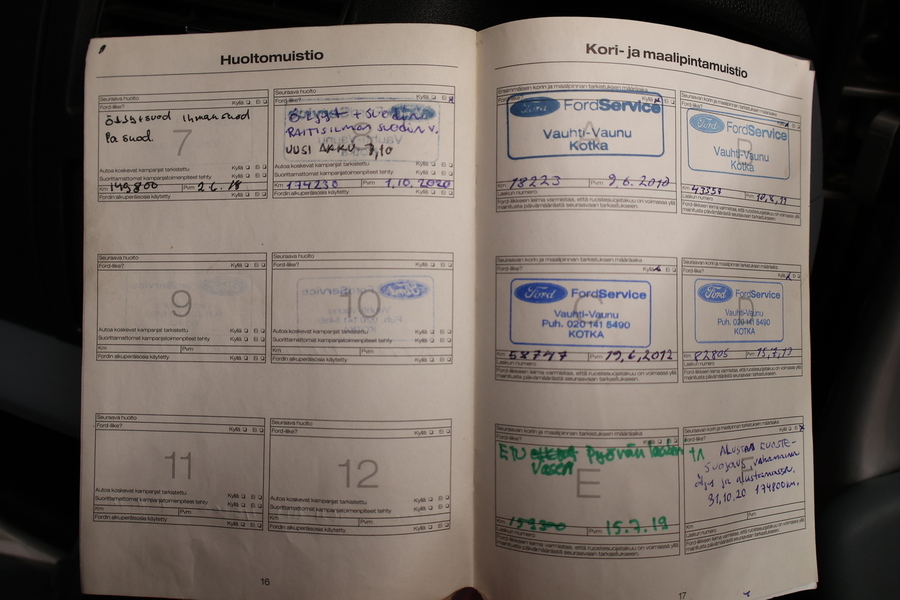 Huoltomuistio
Seuraava huolto
Ford-liike? Kyllä Ei
Öljy + suod ihman suod
pa suod.
7
Autoa koskevat kampanjat tarkistettu
Suorittamattomat kampanjatoimenpiteet tehty Kyllä Ei
Km 149,800 Pvm 2.6.18
Fordin alkuperäisosia käytetty Kyllä Ei
Seuraava huolto
Ford-liike? Kyllä Ei
Öljyt + suodatin
RAITISILMAN SUODIN V.
UUSI AKKU 7,10
Autoa koskevat kampanjat tarkistettu
Suorittamattomat kampanjatoimenpiteet tehty Kyllä Ei
Km 174230 Pvm 1.10.2020
Fordin alkuperäisosia käytetty Kyllä Ei
Seuraava huolto
Ford-liike? Kyllä Ei
9
Autoa koskevat kampanjat tarkistettu
Suorittamattomat kampanjatoimenpiteet tehty Kyllä Ei
Km Pvm
Fordin alkuperäisosia käytetty Kyllä Ei
Seuraava huolto
Ford-liike? Kyllä Ei
10
Autoa koskevat kampanjat tarkistettu
Suorittamattomat kampanjatoimenpiteet tehty Kyllä Ei
Km Pvm
Fordin alkuperäisosia käytetty Kyllä Ei
Seuraava huolto
Ford-liike? Kyllä Ei
11
Autoa koskevat kampanjat tarkistettu
Suorittamattomat kampanjatoimenpiteet tehty Kyllä Ei
Km Pvm
Fordin alkuperäisosia käytetty Kyllä Ei
Seuraava huolto
Ford-liike? Kyllä Ei
12
Autoa koskevat kampanjat tarkistettu
Suorittamattomat kampanjatoimenpiteet tehty Kyllä Ei
Km Pvm
Fordin alkuperäisosia käytetty Kyllä Ei
16
Kori- ja maalipintamuistio
Ensimmäisen korin ja maalipinnan tarkastuksen määräaika
Ford-liike? Kyllä Ei
Ford FordService
Vauhti-Vaunu
Kotka
Km 18223 Pvm 9.6.2010
Laskun numero
Ford-liikkeen leima varmistaa, että ruostesuojatakuu on voimassa yllä
mainitusta päivämäärästä seuraavaan tarkastukseen.
Seuraavan korin ja maalipinnan tarkastuksen määräaika
Ford FordService
Vauhti-Vaunu
Kotka
Km 43557 Pvm
Laskun numero
Ford-liikkeen leima varmistaa, että ruostesuojatakuu on voimassa yllä
mainitusta päivämäärästä seuraavaan tarkastukseen.
Seuraavan korin ja maalipinnan tarkastuksen määräaika
Ford-liike? Kyllä Ei
Ford FordService
Vauhti-Vaunu
Puh. 020 141 5490
KOTKA
Km 58747 Pvm 19.6.2012
Laskun numero
Ford-liikkeen leima varmistaa, että ruostesuojatakuu on voimassa yllä
mainitusta päivämäärästä seuraavaan tarkastukseen.
Seuraavan korin ja maalipinnan tarkastuksen määräaika
Ford-liike? Kyllä Ei
Ford FordService
Vauhti-Vaunu
Puh. 020 141 5490
KOTKA
Km 82805 Pvm 15.7.13
Laskun numero
Ford-liikkeen leima varmistaa, että ruostesuojatakuu on voimassa yllä
mainitusta päivämäärästä seuraavaan tarkastukseen.
Seuraavan korin ja maalipinnan tarkastuksen määräaika
Ford-liike? Kyllä Ei
ETU Pyörän laakeri
Vasen
E
Km 159300 Pvm 15.7.19
Laskun numero
Ford-liikkeen leima varmistaa, että ruostesuojatakuu on voimassa yllä
mainitusta päivämäärästä seuraavaan tarkastukseen.
Seuraavan korin ja maalipinnan tarkastuksen määräaika
Ford-liike? Kyllä Ei
ALUSTAN RUOSTE-
SUOJAUS, vahamainen
öljy ja alustamassa.
31.10.20 174800km.
F
Km Pvm
Laskun numero
Ford-liikkeen leima varmistaa, että ruostesuojatakuu on voimassa yllä
mainitusta päivämäärästä seuraavaan tarkastukseen.
17